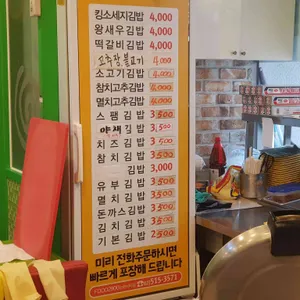 킹소세지김밥 4,000
왕새우김밥 4,000
떡갈비김밥 4,000
고추장불고기 4,000
소고기김밥 4,000
참치고추김밥 4,000
멸치고추김밥 4,000
스팸김밥 3,500
야채김밥 3,500
치즈김밥 3,500
참치김밥 3,500
김밥 3,000
유부김밥 3,500
멸치김밥 3,500
돈까스김밥 3,500
김치김밥 3,500
기본김밥 2,500
미리 전화주문하시면
빠르게 포장해 드립니다
515-3571